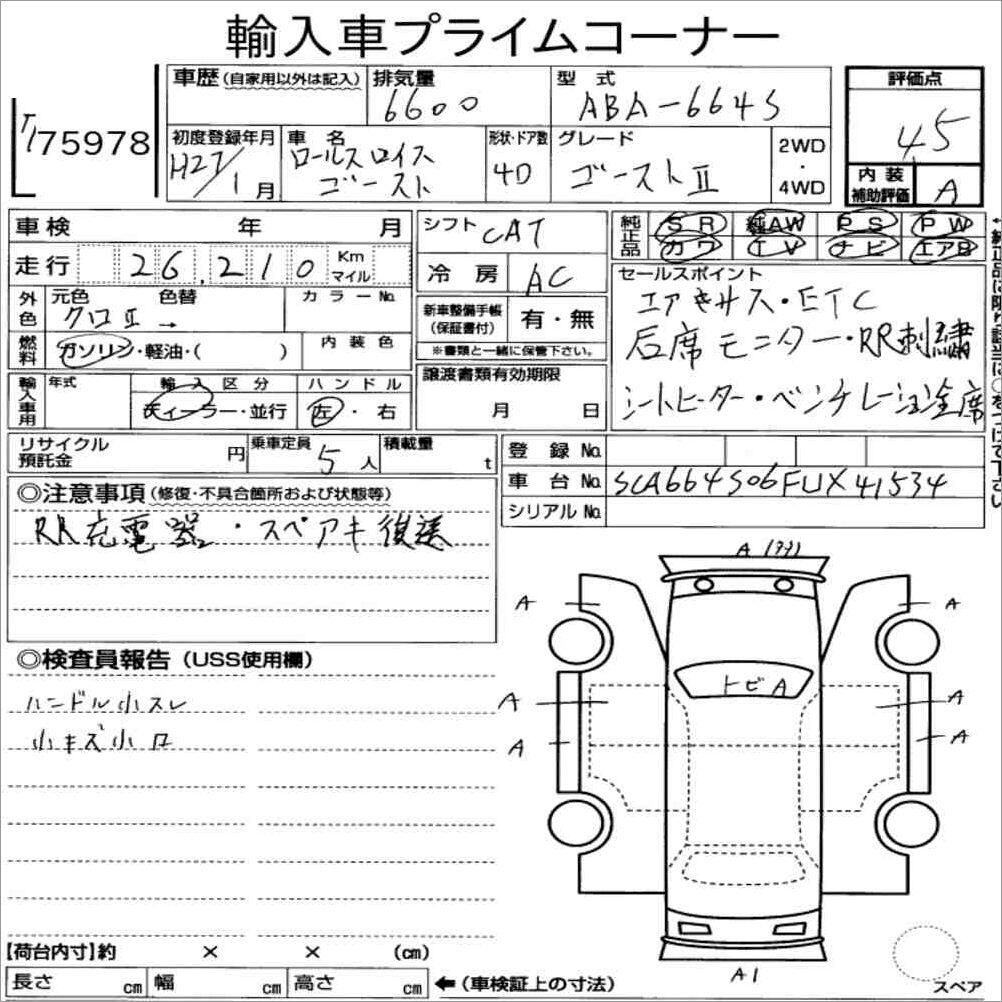 輸入車プライムコーナー
75978
車歴 (自家用以外は記入)
排気量
6600
型式
ABA-664S
評価点
45
初度登録年月
H27/1月
車名
ロールスロイス
ゴースト
形状・ドア数
4D
グレード
ゴーストⅡ
2WD
・
4WD
内装
補助評価
A
車検 年 月
走行 26,210 Km
マイル
シフト CAT
冷房 AC
純正品 SR 純AW PS PW
カワ TV ナビ エアB
外色
元色 色替
クロⅡ →
カラーNo
燃料
ガソリン・軽油・( )
内装色
新車整備手帳
(保証書付)
有・無
※書類と一緒に保管下さい。
セールスポイント
エアサス・ETC
后席モニター・RR刺繍
シートヒーター・ベンチレーション全席
輸入車用
年式
輸入区分
ディーラー・並行
ハンドル
左・右
譲渡書類有効期限
月 日
リサイクル
預託金 円
乗車定員
5人
積載量
t
登録No.
車台No. SCA664S06FUX41534
シリアルNo.
◎注意事項 (修復・不具合箇所および状態等)
RR充電器・スペアキ後送
◎検査員報告 (USS使用欄)
ハンドル小スレ
小キズ小凹
A
A A
トビA
A A
A A
A1
【荷台内寸】約 × × (cm)
長さ cm 幅 cm 高さ cm ←(車検証上の寸法)
スペア